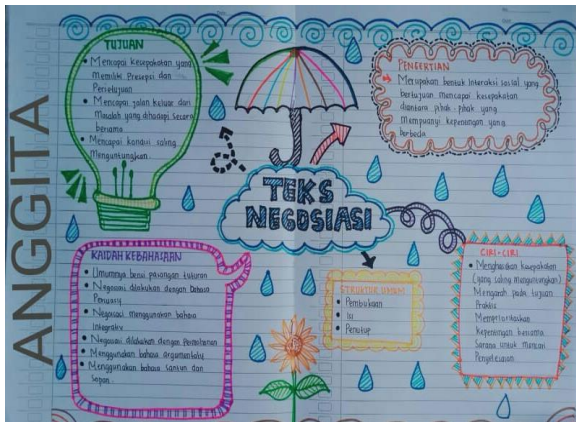 ANGGITA
TUJUAN
• Mencapai kesepakatan yang
Memiliki Presepsi dan
Persetujuan
• Mencapai jalan keluar dari
Masalah yang dihadapi secara
bersama
• Mencapai kondisi saling
Menguntungkan
PENGERTIAN
Merupakan bentuk interaksi sosial yang
bertujuan mencapai kesepakatan
diantara pihak-pihak yang
Mempunyai kepentingan yang
berbeda
TEKS
NEGOSIASI
KAIDAH KEBAHASAAN
• Umumnya berisi pasangan tuturan
• Negosiasi dilakukan dengan Bahasa
Persuasif
• Negosiasi menggunakan bahasa
• Negosiasi dilakukan dengan
• Menggunakan bahasa argumentatif
• Menggunakan bahasa santun dan
Sopan.
STRUKTUR UMUM
• Pembukaan
• Isi
• Penutup
CIRI-CIRI
• Menghasilkan kesepakatan
(yang saling menguntungkan)
Mengarah pada tujuan
Praktis
Memprioritaskan
Kepentingan bersama
Sarana untuk mencari
Penyelesaian